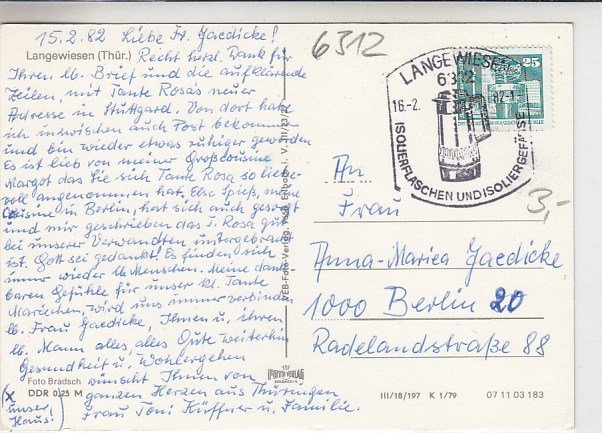 15.2.82 Liebe Fr. Gaedicke!
Langewiesen (Thür.) Recht herzl. Dank für
Ihren lb. Brief und die aufklärende
Zeilen, mit Tante Rosa's neuer
Adresse in Stuttgard. Von dort habe
ich inzwischen auch Post bekommen
und bin wieder etwas ruhiger geworden
Es ist lieb von meiner Großcousine
Margot das Sie sich Tante Rosa so liebe-
voll angenommen hat. Else Spieß, meine
Cousine in Berlin, hat sich auch gesorgt
und mir geschrieben das T. Rosa gut
bei unserer Verwandten untergebracht
ist. Gott sei gedankt! Es finden sich
immer wieder lb. Menschen. Meine dank-
baren Gefühle für unser kl. Tante
Mariechen, wird uns immer verbinden
lb. Frau Gaedicke, Ihnen u, ihren
lb. Mann alles alles Gute weiterhin
Gesundheit u. Wohlergehen
wünscht Ihnen von
ganzen Herzen aus Thüringen
Frau Toni Küffner u. Familie.
(x
unser
Haus!)
Foto Bradsch
DDR 0,25 M
VEB-Foto-Verlag, 9382 Erlbach i. V. III/23/27
FOTO VERLAG
ERLBACH
6312
LANGEWIESEN
6312
16.-2. 82-1
ISOLIERFLASCHEN UND ISOLIERGEFÄSSE
25
3,-
An
Frau
Anna-Marica Gaedicke
1000 Berlin 20
Radelandstraße 88
III/18/197 K 1/79 07 11 03 183